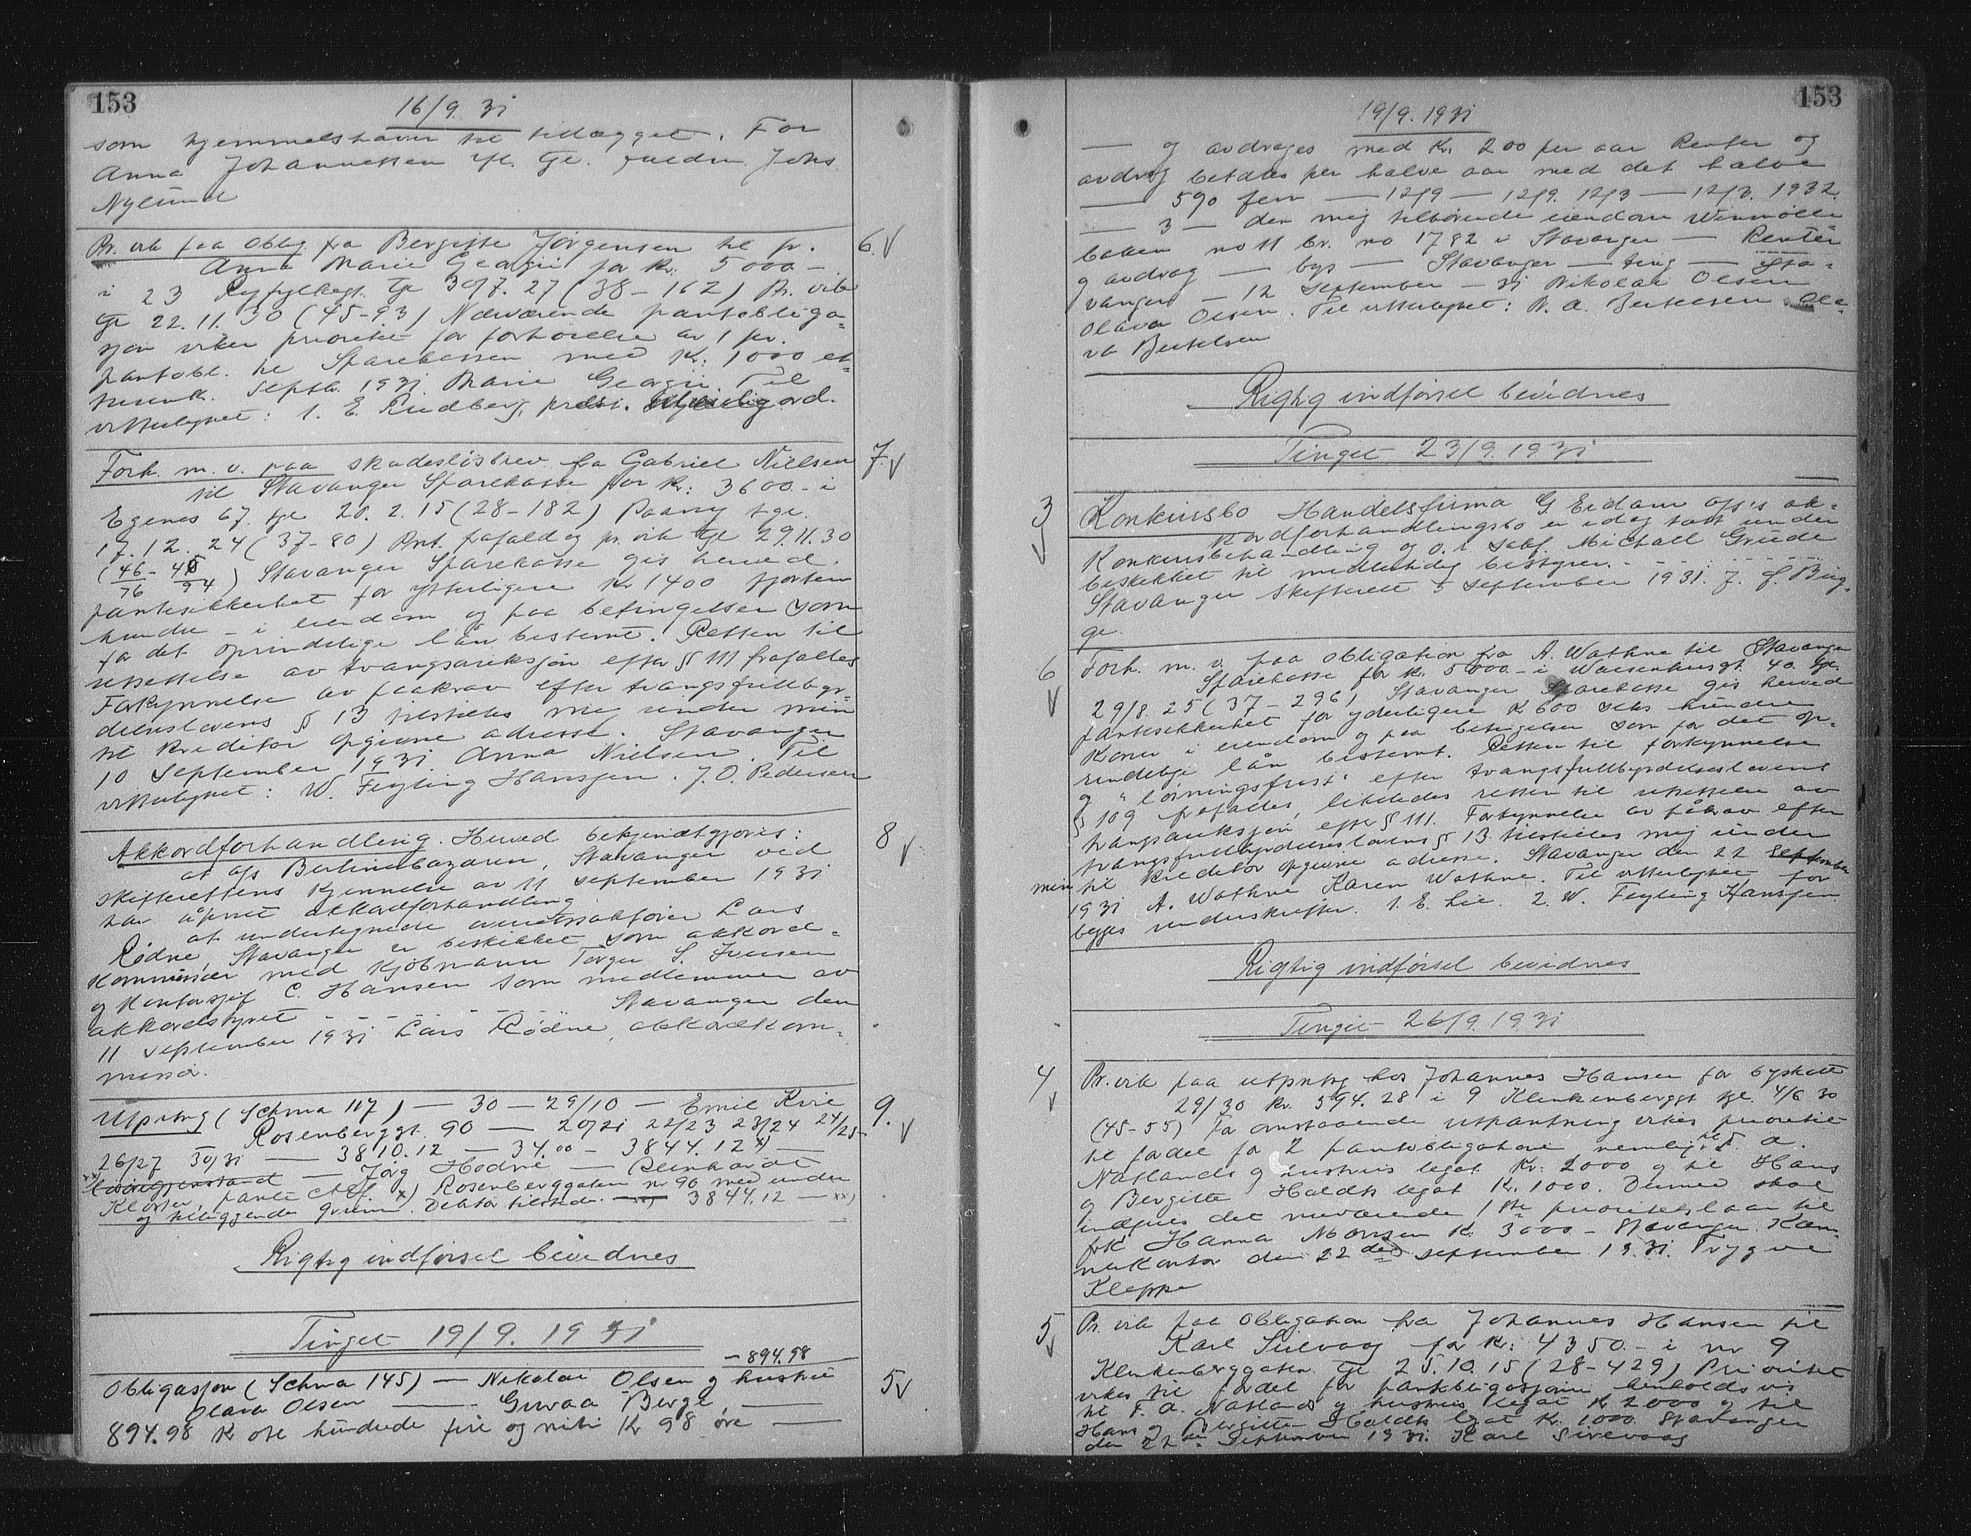 153
16/9. 31
som hjemmelshaver til tillægget. For
Anna Johannessen ifl. tgl. fuldm. Johs
Nylund
6.
Pr. vik paa Oblig. fra Bergitte Jørgensen til fr.
Anna Marie Georgii for Kr. 5000 -
i 23 Ryfylkegt. tgl 30/7. 27 (38-162) Pr. vik
tgl 22.11.30 (45-93) Nærværende pantobliga-
sjon viker prioritet for forhøielse av 1 pr.
pantobl. til Sparekassen med Kr. 1000 et
tusen k. Septb. 1931 Marie Georgii. Til
vitterlighet: 1. E. Rudberg, prest.
7.
Forh. m. v. paa skadesløsbrev fra Gabriel Nielsen
til Stavanger Sparekasse for Kr: 3600 - i
Egenes 67. tgl 20. 2. 15 (28-182) Paany tgl.
17. 12. 24 (37-80) Rnt. frafald og pr. vik tgl 29.11.30
(46 - 45
76 94) Stavanger Sparekasse gis herved
pantesikkerhet for ytterligere Kr 1400 fjorten
hundre - i eiendom og paa betingelser som
for det oprindelige lån bestemt. Retten til
utsettelse av tvangsauksjon efter § 111 frafaldes
Forkynnelse av paakrav efter tvangsfullbyr-
delseslovens § 13 tilstilles mig under min
til kreditor opgivne adresse. Stavanger
10 September 1931 Anna Nielsen. Til
vitterlighet: W. Feyling Hanssen. J. O. Pedersen
8
Akkordforhandling. Herved bekjendtgjøres:
at a/s Berlinerbazaren, Stavanger ved
skifterettens kjennelse av 11 september 1931
har åpnet akkordforhandling
at undertegnede overrettssakfører Lars
Rødne, Stavanger er beskikket som akkord-
kommissær med kjøbmann Torger S. Iversen
og kontorsjef C. Hansen som medlemmer av
akkordstyret - - - - - Stavanger den
11 september 1931 Lars Rødne, akkordkom-
missær.
9.
Utpntng (Schma 117) — 30 — 29/10 — Emil Kvie
Rosenberggt. 90 — 20/21 22/23 23/24 24/25
26/27 30/31 — 3810.12 — 34.00 - 3844.12 x) —
— Jørg Hodne — Reinhardt
Kloster, pantechef. x) Rosenberggaten nr 90 med under
og tilliggende grunn. Debitor tilstede. 3844.12 — xx)
Rigtig indførsel bevidnes
Tinget 19/9. 1931
5
- 894.98
Obligasjon (Schma 145) — Nikolai Olsen og hustru
Olava Olsen — Guvaa Berge, —
894.98 Kr otte hundrede fire og nitti Kr 98 øre —
153
19/9. 1931
— og avdrages med Kr. 200 per aar Renter og
avdrag betales per halve aar med det halve
— 5% fem — 12/9 — 12/9. 12/3 — 12/3. 1932
— 3 — den mig tilhørende eiendom Vinmølle
bakken no 11 br. no 1782 i Stavanger — Renter
og avdrag — bys — Stavanger — ting — Sta-
vanger — 12 September — 31 Nikolai Olsen
Olava Olsen. Til vitterlighet: N. A. Bertelsen Ola-
va Bertelsen
Rigtig indførsel bevidnes
Tinget 23/9. 1931
3
Konkursbo Handelsfirma G Eidam a/s's ak-
kordforhandlingsbo er idag tatt under
Konkursbehandling og o. r. sakf. Michall Grude
beskikket til midlertidig bestyrer. - - - -
Stavanger skifterett 5 september 1931. J. S. Büg-
ge.
6
Forh. m. v. paa obligation fra A. Wathne til Stavanger
Sparekasse for Kr. 5000 - i Waisenhusgt. 40. tgl.
29/8. 25 (37-296) Stavanger Sparekasse gis herved
pantesikkerhet for yderligere Kr 600 seks hundre
Kroner i eiendom og paa betingelser som for det op-
rindelige lån bestemt. Retten til forkynnelse
og "løsningsfrist" efter tvangsfullbyrdelseslovens
§ 109 frafaldes, likeledes retten til utsettelse av
tvangsauksjon efter § 111. Forkynnelse av påkrav efter
tvangsfullbyrdelseslovens § 13 tilstilles mig under
min til kreditor opgivne adresse. Stavanger den 22 September
1931 A. Wathne Karen Wathne. Til vitterlighet for
begges underskrifter. 1. E. Lie. 2. W. Feyling Hanssen
Rigtig indførsel bevidnes
Tinget 26/9. 1931
4
Pr. vik paa utpntng hos Johannes Hansen for byskatt
29/30 Kr. 594.28 i 9 Klinkenberggt tgl. 4/6 30
(45-55) For omstaaende utpantning vikes prioritet
til fordel for 2 pantobligationer nemlig til F. A.
Natlands og hustrus legat Kr. 2000 og til Hans
og Bergitte Haldts legat Kr. 1000. Dermed skal
indfries det nuværende 1ste prioritetslaan til
frk Hanna Monsen Kr. 3000 - Stavanger Kæm-
nerkontor den 22den september 1931. Trygve
Kleppe
5
Pr. vik paa Obligation fra Johannes Hansen til
Karl Sirevaag for Kr: 4350. - i nr 9
Klinkenberggaten tgl 25.10.15 (28-429) Prioritet
vikes til fordel for pantobligasjoner henholdsvis
til F. A. Natlands og hustrus legat Kr 2000 og til
Hans og Bergitte Haldts legat Kr. 1000. Stavanger
den 22de September 1931. Karl Sirevaag